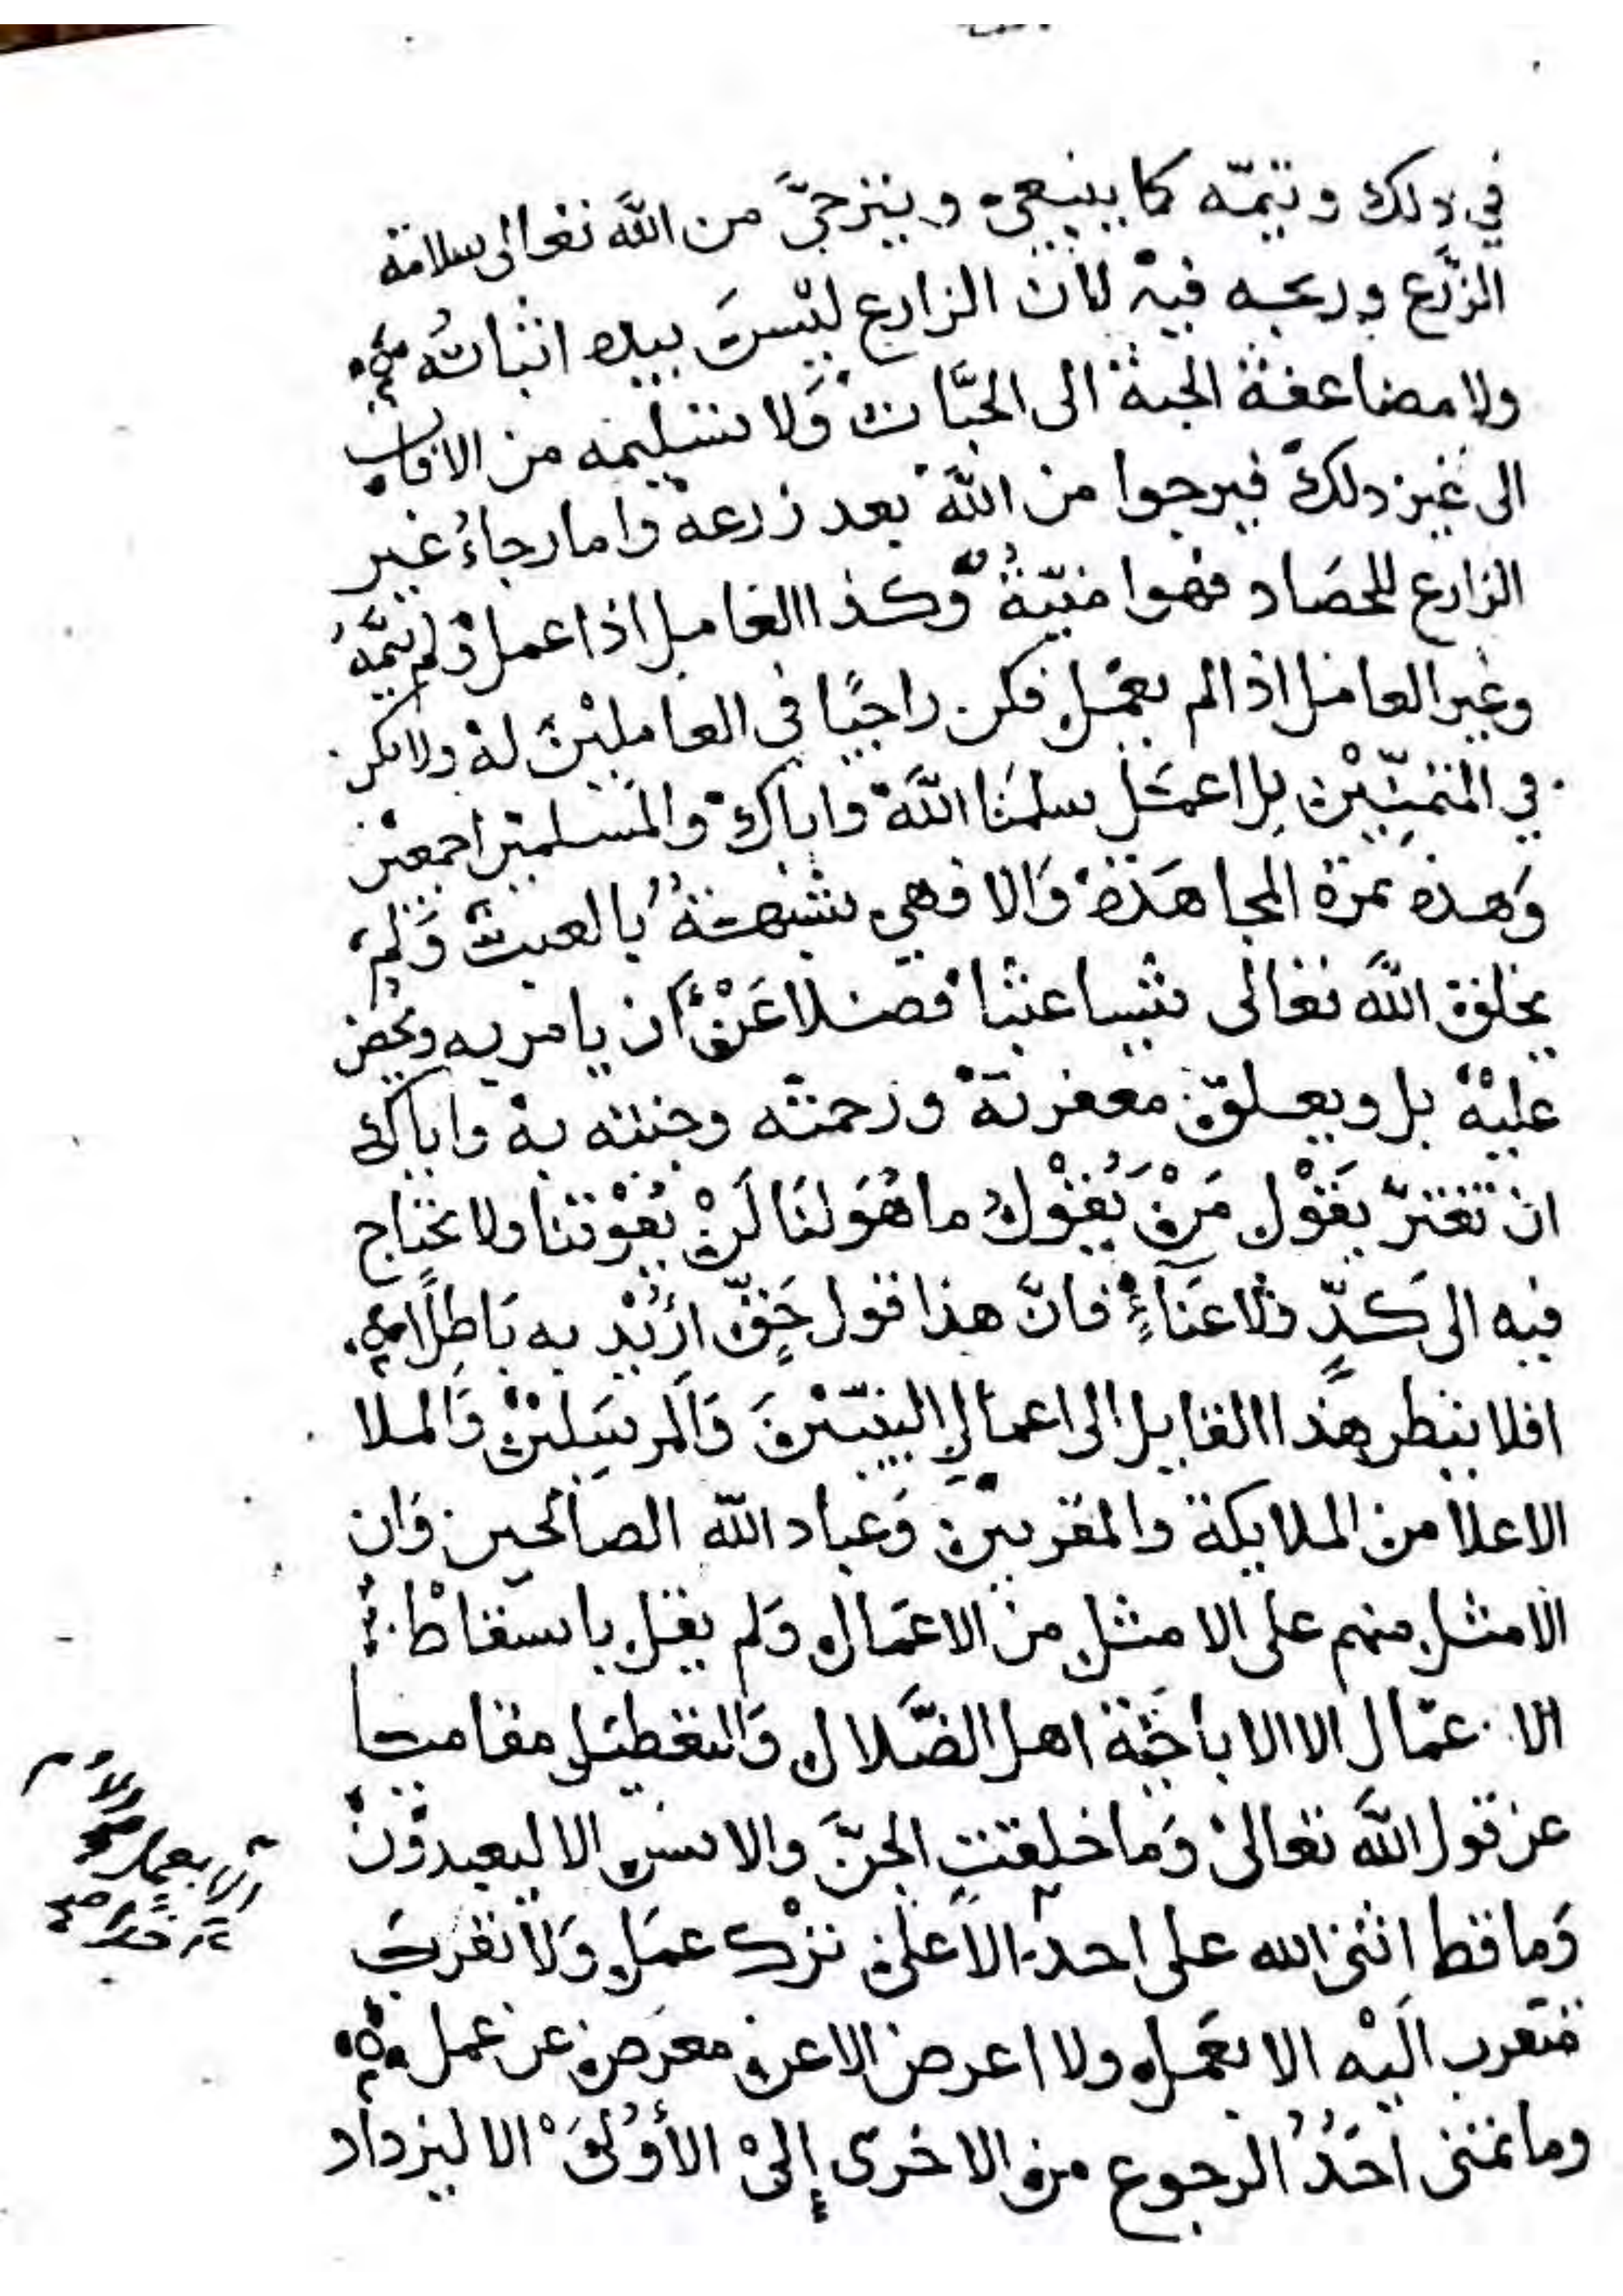 في ذلك وتيمّه كما ينبغي ويترجيَّ من اللّه تعالى سلامة
الزَّرع وربحه فيهْ لانْ الزارع ليْسَ بيده انباتُه
ولا مضاعفة الحبة الى الحبَّات وَلا تسليمه من الافات
الى غير ذلك فيرجوا من اللّه بعد زرعه واما رجاءُ غير
الزارع للحصَاد فهوا منيّةُ وكذا العامل اذا عمل وَلم يتمَّهُ
وغير العامل اذا لم يعمَل فكن راجيًا في العامليْن لهْ ولا تكن
في المتمنّيْن بل اعمَل سلمَنا اللَّهْ واياك والمسلمين اجمعين
وَهذه ثمرة المجاهَدَهْ وَالا فهي شبيهةُ بالعبث وَلمْ
يخلق اللَّه تعالى شيا عبثا فضلا عَنْ ان يامر به ويحض
عليْهْ بل ويعلق مغفرتهْ ورحمته وجنته بهْ واياك
انْ تغترّ بقَوْل مَنْ يُقوْلُ ما هُوَ لنَا لَنْ يُفوْتنا ولا نحتاج
فيه الى كَدٍّ وَلا عَنَاءٍ فانَّ هذا قول حَقٍّ ارُيْدَ به بَاطِلًا
افلا ينظر هذا القايل الى اعمال النبيّيْنَ وَالمرسَليْنْ وَالملا
الاعلا من الملايكة والمقربيْن وَعباد اللّه الصالحين وَان
الامثل منهم على الامثل من الاعمَال وَلم يقل باسقاطْ
الا عمَال الا الاباحَيّة اهل الضَّلال وَالتعطيَل مقاميا
عن قول اللَّه تعالىْ وَما خلقت الجنَّ والانس الا ليعبدوْنْ
وَما قط اثنى الله على احد الا علىْ ترْك عمَل وَلا تقربَ
متقرب الَيْه الا بعمَل ولا اعرض الا عن معرَض عن عمل
وما تمنى احَدُ الرجوع من الاخرى إلىْ الأوْلىَْ الا ليزداد